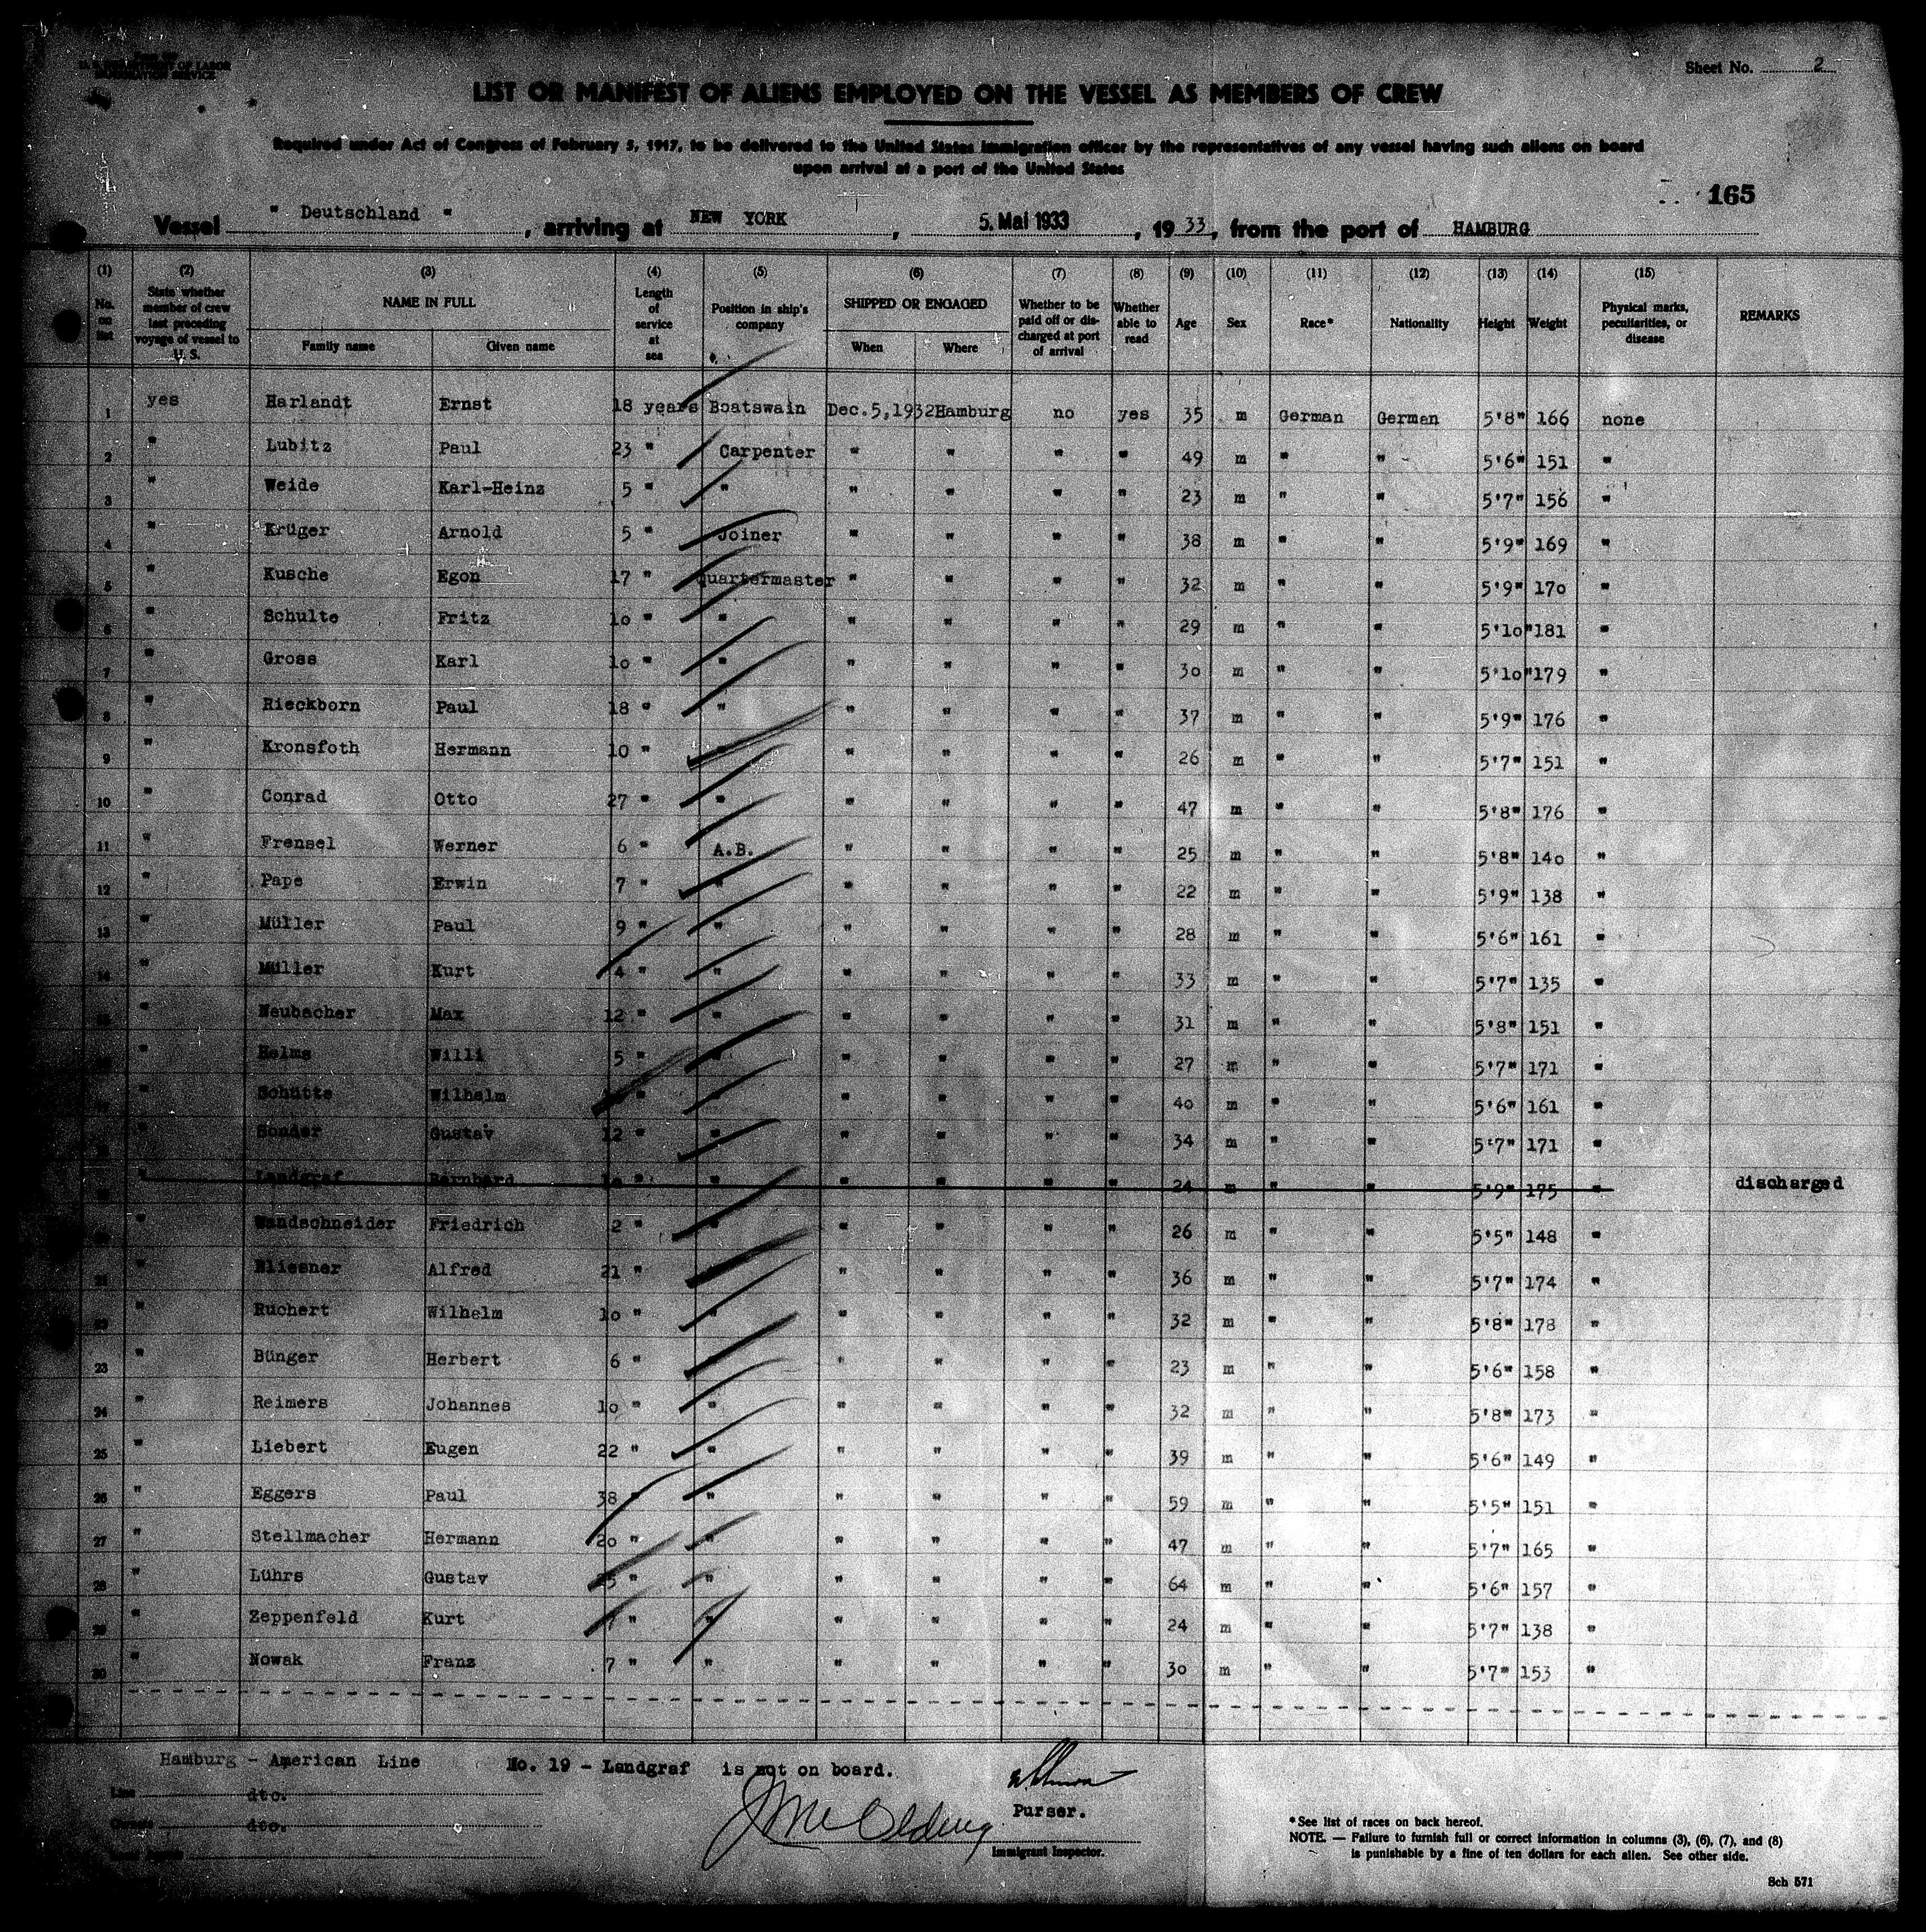 U. S. DEPARTMENT OF LABOR
IMMIGRATION SERVICE
Sheet No. 2
LIST OR MANIFEST OF ALIENS EMPLOYED ON THE VESSEL AS MEMBERS OF CREW
Required under Act of Congress of February 5, 1917, to be delivered to the United States immigration officer by the representatives of any vessel having such aliens on board
upon arrival at a port of the United States
165
Vessel " Deutschland " , arriving at NEW YORK , 5. Mai 1933 , 19 33, from the port of HAMBURG
(1) (2) (3) (4) (5) (6) (7) (8) (9) (10) (11) (12) (13) (14) (15)
No. on list State whether member of crew last preceding voyage of vessel to U. S. NAME IN FULL Family name Given name Length of service at sea Position in ship's company SHIPPED OR ENGAGED When Where Whether to be paid off or discharged at port of arrival Whether able to read Age Sex Race* Nationality Height Weight Physical marks, peculiarities, or disease REMARKS
1 yes Harlandt Ernst 18 years Boatswain Dec.5,1932 Hamburg no yes 35 m German German 5'8" 166 none
2 " Lubitz Paul 23 " Carpenter " " " " 49 m " " 5'6" 151 "
3 " Weide Karl-Heinz 5 " " " " " " 23 m " " 5'7" 156 "
4 " Krüger Arnold 5 " Joiner " " " " 38 m " " 5'9" 169 "
5 " Kusche Egon 17 " Quartermaster " " " " 32 m " " 5'9" 170 "
6 " Schulte Fritz 10 " " " " " " 29 m " " 5'10" 181 "
7 " Gross Karl 10 " " " " " " 30 m " " 5'10" 179 "
8 " Rieckborn Paul 18 " " " " " " 37 m " " 5'9" 176 "
9 " Kronsfoth Hermann 10 " " " " " " 26 m " " 5'7" 151 "
10 " Conrad Otto 27 " " " " " " 47 m " " 5'8" 176 "
11 " Frensel Werner 6 " A.B. " " " " 25 m " " 5'8" 140 "
12 " Pape Erwin 7 " " " " " " 22 m " " 5'9" 138 "
13 " Müller Paul 9 " " " " " " 28 m " " 5'6" 161 "
14 " Müller Kurt 4 " " " " " " 33 m " " 5'7" 135 "
15 " Neubacher Max 12 " " " " " " 31 m " " 5'8" 151 "
" Helms Willi 5 " " " " " " 27 m " " 5'7" 171 "
" Schütte Wilhelm " " " " " " 40 m " " 5'6" 161 "
" Sonder Gustav 12 " " " " " " 34 m " " 5'7" 171 "
" Landgraf Bernhard " " " " " " 24 m " " 5'9" 175 " discharged
" Wandschneider Friedrich 2 " " " " " " 26 m " " 5'5" 148 "
21 " Bliesner Alfred 21 " " " " " " 36 m " " 5'7" 174 "
22 " Ruchert Wilhelm 10 " " " " " " 32 m " " 5'8" 178 "
23 " Bünger Herbert 6 " " " " " " 23 m " " 5'6" 158 "
24 " Reimers Johannes 10 " " " " " " 32 m " " 5'8" 173 "
25 " Liebert Eugen 22 " " " " " " 39 m " " 5'6" 149 "
26 " Eggers Paul 38 " " " " " " 59 m " " 5'5" 151 "
27 " Stellmacher Hermann 20 " " " " " " 47 m " " 5'7" 165 "
28 " Lührs Gustav " " " " " " 64 m " " 5'6" 157 "
29 " Zeppenfeld Kurt 7 " " " " " " 24 m " " 5'7" 138 "
30 " Nowak Franz 7 " " " " " " 30 m " " 5'7" 153 "
Hamburg - American Line No. 19 - Landgraf is not on board.
Line dto.
Owners dto.
Purser.
Immigrant Inspector.
*See list of races on back hereof.
NOTE. — Failure to furnish full or correct information in columns (3), (6), (7), and (8)
is punishable by a fine of ten dollars for each alien. See other side.
Sch 571